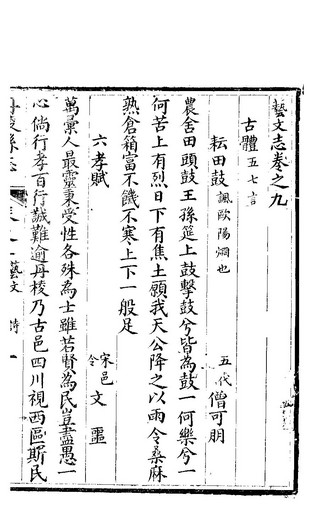 藝文志卷之九
古體五七言
耘田鼓諷歐陽烱也 五代僧可朋
農舍田頭鼓王孫筵上鼓擊鼓兮皆為鼓一何樂兮一
何苦上有烈日下有焦土願我天公降之以雨令桑麻
熟倉箱富不饑不寒上下一般足
六孝賦 宋邑令文噩
萬彙人最靈秉受性各殊為士雖若賢為民豈盡愚一
心倘行孝百行誠難逾丹棱乃古邑四川視西區斯民
藝文 詩 一